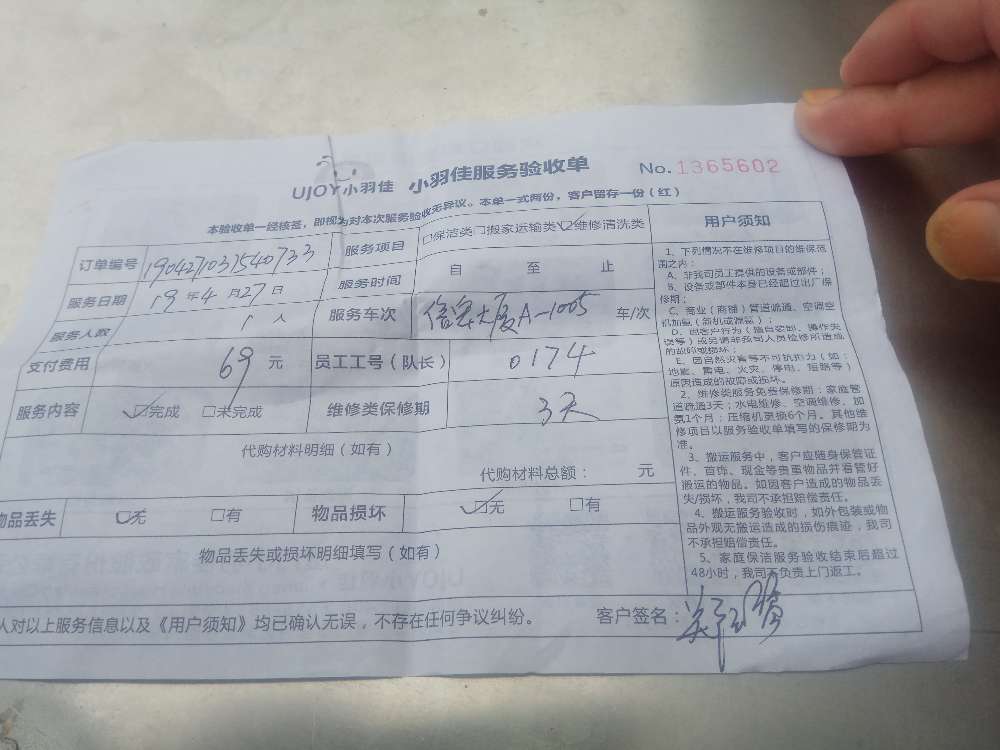 UJOY小羽佳 小羽佳服务验收单 No.1365602
本验收单一经核签，即视为对本次服务验收无异议。本单一式两份，客户留存一份（红）
订单编号 190427103154 0733 服务项目 □保洁类□搬家运输类☑维修清洗类
服务日期 19年4月27日 服务时间 自 至 止
服务人数 1人 服务车次 大厦A-1005 车/次
支付费用 69元 员工工号（队长） 0174
服务内容 ☑完成 □未完成 维修类保修期 3天
代购材料明细（如有）
代购材料总额： 元
物品丢失 ☑无 □有 物品损坏 ☑无 □有
物品丢失或损坏明细填写（如有）
人对以上服务信息以及《用户须知》均已确认无误，不存在任何争议纠纷。 客户签名：
用户须知
1、下列情况不在维修项目的维保范
围之内：
A、非我司员工提供的设备或部件；
B、设备或部件本身已经超过出厂保
修期；
C、商业（商铺）管道疏通、空调空
机加氨（新机或漏氨）；
D、因客户行为（擅自装卸、操作失
误等）或另请非我司人员检修所造成
的故障或损坏；
E、因自然灾害等不可抗拒力（如：
地震、雷电、火灾、停电、短路等）
原因造成的故障或损坏。
2、维修类服务免费保修期：家庭管
道疏通3天；水电维修、空调维修、加
氨1个月；压缩机更换6个月。其他维
修项目以服务验收单填写的保修期为
准。
3、搬运服务中，客户应随身保管证
件、首饰、现金等贵重物品并看管好
搬运的物品。如因客户造成的物品丢
失/损坏，我司不承担赔偿责任。
4、搬运服务验收时，如外包装或物
品外观无搬运造成的损伤痕迹，我司
不承担赔偿责任。
5、家庭保洁服务验收结束后超过
48小时，我司不负责上门返工。